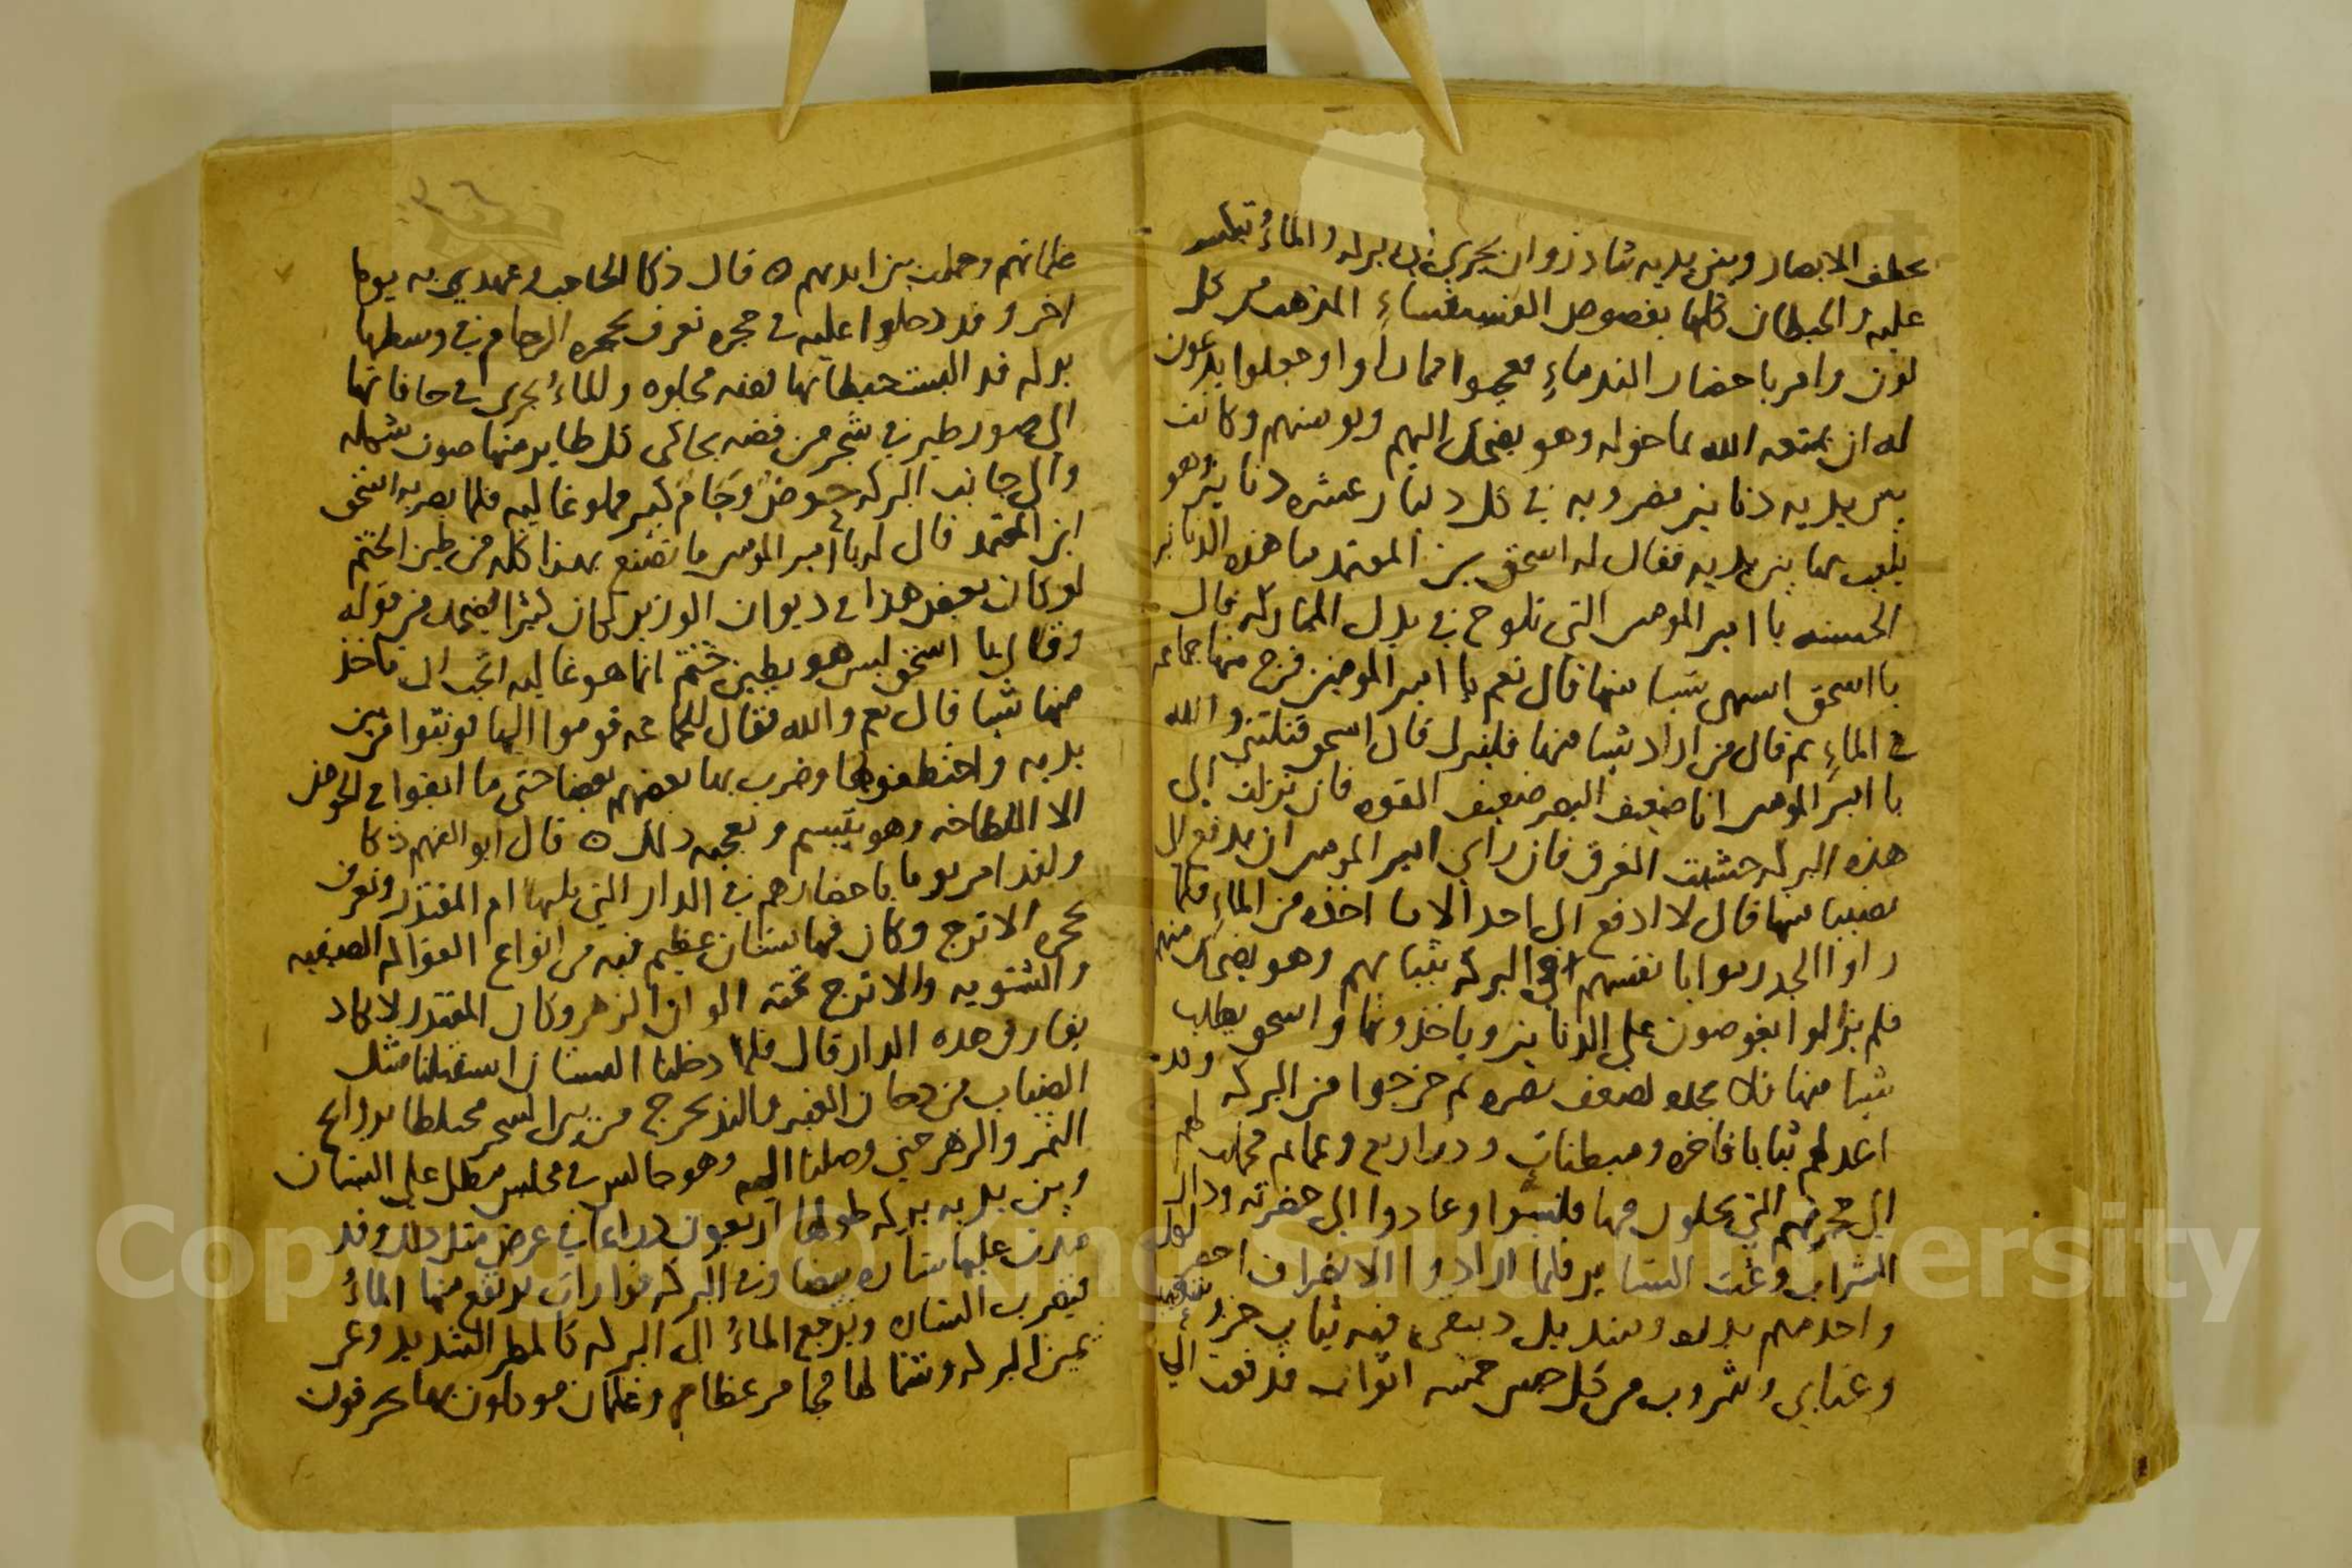 يخطف الابصار وبين يديه شاذروان يجري الى بركه والماء
عليه والحيطان كلها بفصوص الفسيفساء المذهب من كل
لون وامر باحضار الندماء وجعلوا يدعون
له ان يمتعه الله بما خوله وهو يضحك اليهم ويونسهم وكانت
بين يديه دنانير مضروبه في كل دينار عشره دنانير وهو
يلعب بها بين يديه فقال له اسحق بن المعتمد ما هذه الدنانير
الحسنه يا امير المومنين التي تلوح في يدك المباركه قال
يا اسحق اتشتهي شيا منها قال نعم يا امير المومنين فزج منها جماعه
في الماء ثم قال من اراد شيا منها فلينزل قال اسحق قتلتني والله
يا امير المومنين انا ضعيف البصر ضعيف القوه فان نزلت الى
هذه البركه خشيت الغرق فان راى امير المومنين ان يدفع الي
نصيبا منها قال لا ادفع الى احد الا ما اخذه من الماء فلما
راوا الجد رموا بانفسهم في البركه بثيابهم وهو يضحك منهم
فلم يزالوا يغوصون على الدنانير وياخذونها واسحق يطلب
شيا منها فلا يجده لضعف بصره ثم خرجوا من البركه وقد
اعد لهم ثيابا فاخره ومبطنات ودراريع وعمايم فحملت لهم
الى حجرتهم التي يخلون فيها فلبسوا وعادوا الى حضرته ودار
الشراب وغنت الستاير فلما ارادوا الانصراف احضر لكل
واحد منهم بدله ومنديل دبيقي فيه ثياب خز
وعتابي وشروب من كل جنس خمسه اثواب فدفعت الى
غلمانهم وحملت بين ايديهم ه قال ذكا الحاجب وعهدي به يوما
اخر وقد دخلوا عليه في حجره تعرف بحجره الرخام في وسطها
بركه قد البست حيطانها فضه مجلوه والماء يجري في حافاتها
الى صور طير في شجر من فضه يحاكي كل طاير منها صوت شكله
والى جانب البركه حوض وجام كبير مملو غاليه فلما بصر به اسحق
ابن المعتمد قال له يا امير المومنين ما تصنع بهذا كله من طين الختم
لو كان بعض هذا في ديوان الوزير لكان كثيرا فضحك من قوله
وقال يا اسحق ليس هو بطين ختم انما هو غاليه اتحب ان تاخذ
منها شيا قال نعم والله فقال للجماعه قوموا اليها فوثبوا من بين
يديه واختطفوها وضرب بها بعضهم بعضا حتى ما ابقوا في الحوض
الا اللطاخه وهو يتبسم ويعجبه ذلك ه قال ابو الفهم ذكا
ولقد امر يوما باحضارهم في الدار التي تليها ام المقتدر وتعرف
بحجره الاترج وكان فيها بستان عظيم فيه من انواع الفواكه الصيفيه
والشتويه والاترج تحته الوان الزهر وكان المقتدر لا يكاد
يفارق هذه الدار قال فلما دخلنا البستان استقبلنا مثل
الضباب من دخان العنبر والند يخرج من بين الشجر مختلطا بروايح
الثمر والزهر حتى وصلنا اليه وهو جالس في مجلس مطل على البستان
وبين يديه بركه طولها اربعون ذراعا في عرض مثل ذلك وقد
مدت عليها ستاره بيضا وفي البركه فوارات يرتفع منها الماء
فيضرب الستاره ويرجع الماء الى البركه كالمطر الشديد وعن
يمين البركه وشمالها مجامر عظام وغلمان موكلون بها يحرقون